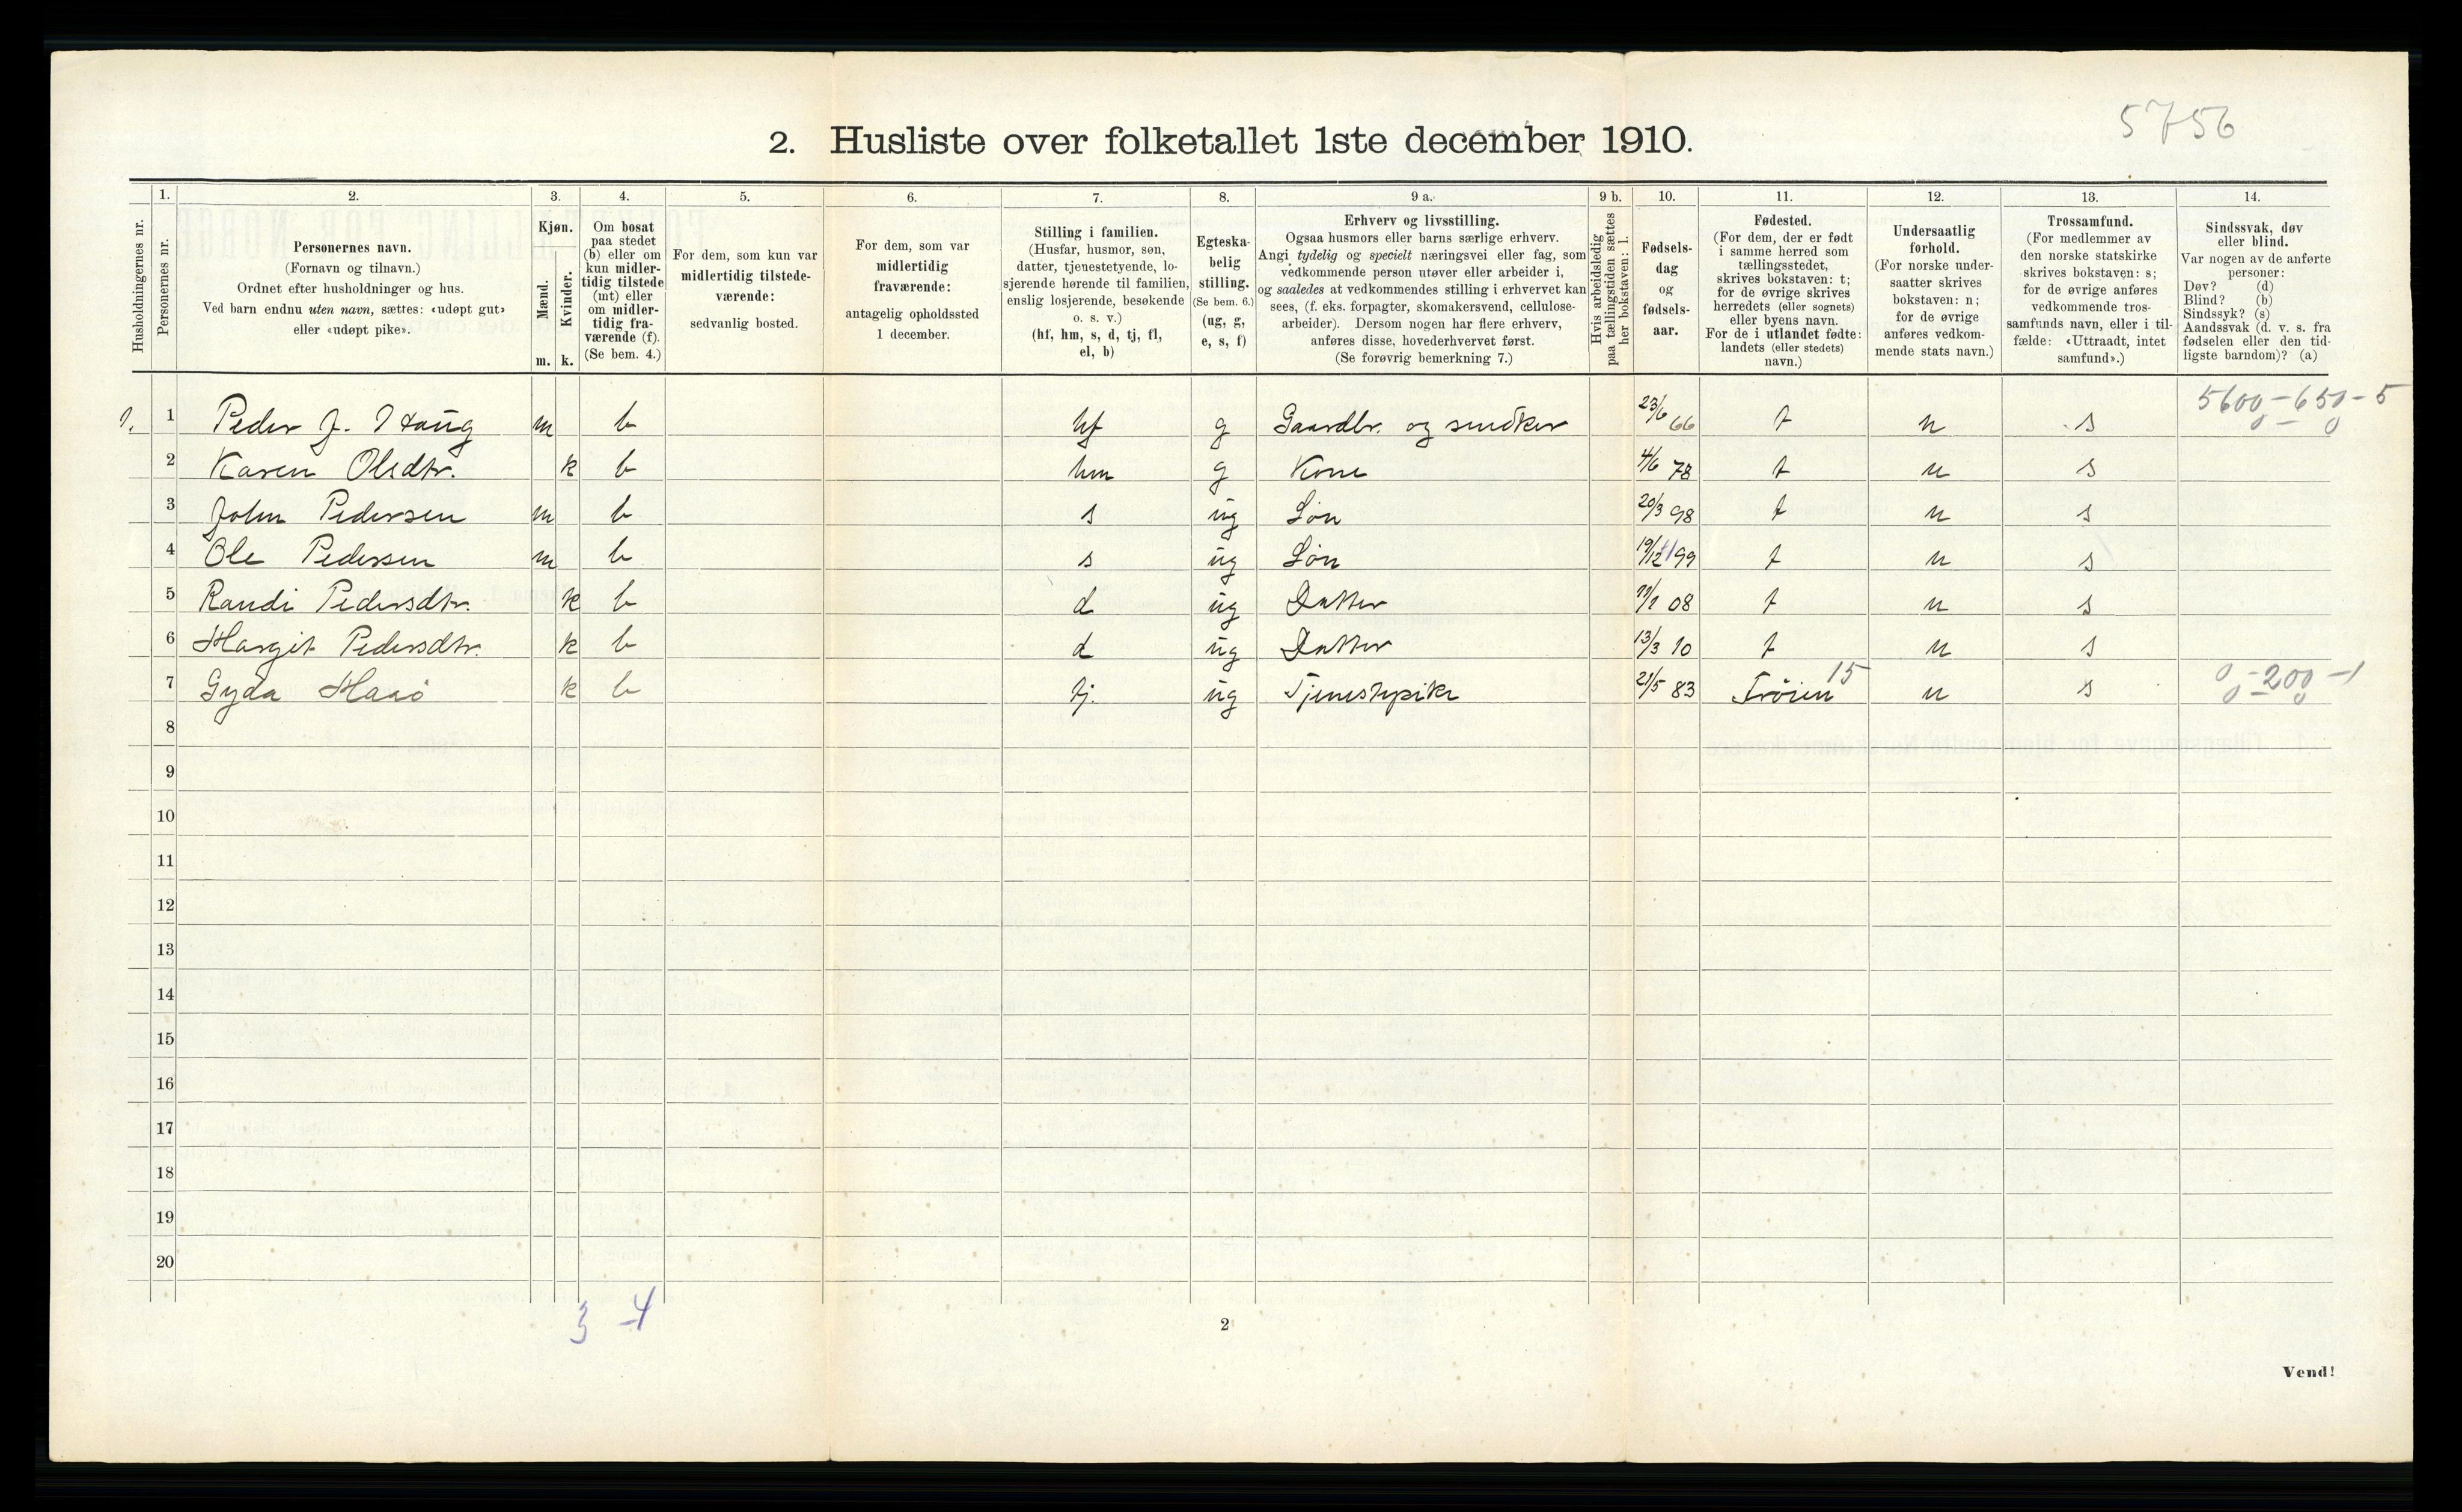 5756
2. Husliste over folketallet 1ste december 1910.
Husholdningernes nr.
1.
Personernes nr.
2.
Personernes navn.
(Fornavn og tilnavn.)
Ordnet efter husholdninger og hus.
Ved barn endnu uten navn, sættes: «udøpt gut»
eller «udøpt pike».
3.
Kjøn.
Mænd.
Kvinder.
m. k.
4.
Om bosat
paa stedet
(b) eller om
kun midler-
tidig tilstede
(mt) eller
om midler-
tidig fra-
værende (f).
(Se bem. 4.)
5.
For dem, som kun var
midlertidig tilstede-
værende:
sedvanlig bosted.
6.
For dem, som var
midlertidig
fraværende:
antagelig opholdssted
1 december.
7.
Stilling i familien.
(Husfar, husmor, søn,
datter, tjenestetyende, lo-
sjerende hørende til familien,
enslig losjerende, besøkende
o. s. v.)
(hf, hm, s, d, tj, fl,
el, b)
8.
Egteska-
belig
stilling.
(Se bem. 6.)
(ug, g,
e, s, f)
9 a.
Erhverv og livsstilling.
Ogsaa husmors eller barns særlige erhverv.
Angi tydelig og specielt næringsvei eller fag, som
vedkommende person utøver eller arbeider i,
og saaledes at vedkommendes stilling i erhvervet kan
sees, (f. eks. forpagter, skomakersvend, cellulose-
arbeider). Dersom nogen har flere erhverv,
anføres disse, hovederhvervet først.
(Se forøvrig bemerkning 7.)
9 b.
Hvis arbeidsledig
paa tællingstiden sættes
her bokstaven: l.
10.
Fødsels-
dag
og
fødsels-
aar.
11.
Fødested.
(For dem, der er født
i samme herred som
tællingsstedet,
skrives bokstaven: t;
for de øvrige skrives
herredets (eller sognets)
eller byens navn.
For de i utlandet fødte:
landets (eller stedets)
navn.)
12.
Undersaatlig
forhold.
(For norske under-
saatter skrives
bokstaven: n;
for de øvrige
anføres vedkom-
mende stats navn.)
13.
Trossamfund.
(For medlemmer av
den norske statskirke
skrives bokstaven: s;
for de øvrige anføres
vedkommende tros-
samfunds navn, eller i til-
fælde: «Uttraadt, intet
samfund».)
14.
Sindssvak, døv
eller blind.
Var nogen av de anførte
personer:
Døv? (d)
Blind? (b)
Sindssyk? (s)
Aandssvak (d. v. s. fra
fødselen eller den tid-
ligste barndom)? (a)
1. 1 Peder J. Haug m b hf g Gaardbr. og snedker 23/6 66 t n s 5600-650-5
2 Karen Olsdtr. k b hm g Kone 4/6 78 t n s
3 John Pedersen m b s ug Søn 20/3 98 t n s
4 Ole Pedersen m b s ug Søn 19/12 99 t n s
5 Randi Pedersdtr. k b d ug Datter 11/1 08 t n s
6 Margit Pedersdtr. k b d ug Datter 13/3 10 t n s
7 Gyda Haaö k b tj. ug Tjenestepike 21/5 83 Fröien 15 n s 0-200-1
8
9
10
11
12
13
14
15
16
17
18
19
20
3 4
2
Vend!